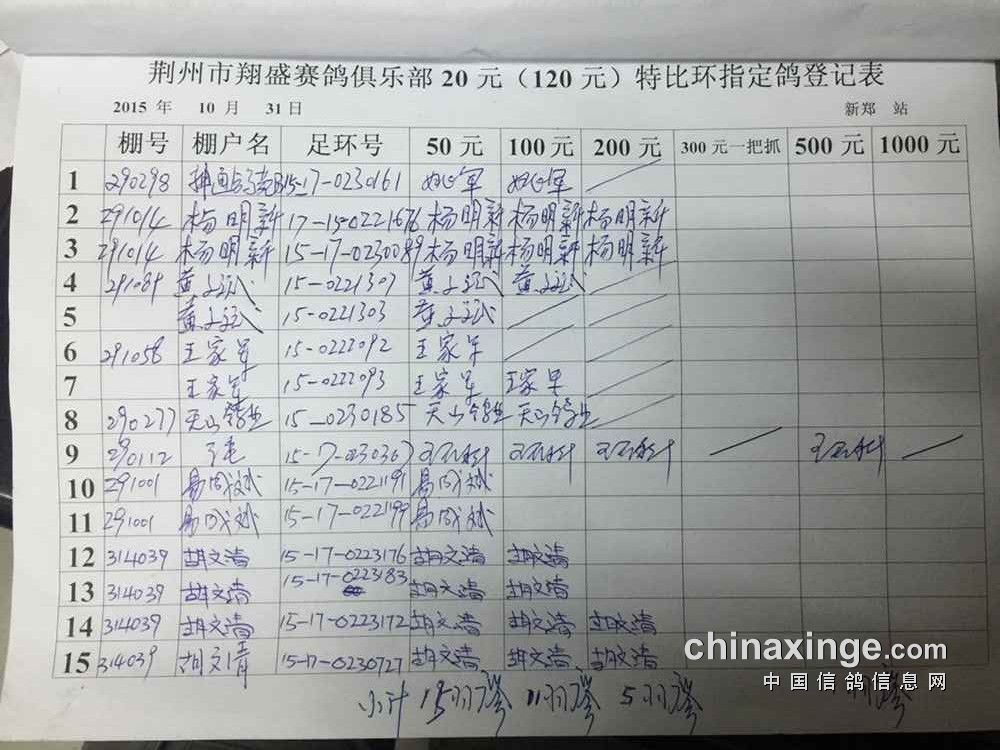 荆州市翔盛赛鸽俱乐部20元（120元）特比环指定鸽登记表
2015 年 10 月 31日 新郑 站
棚号 棚户名 足环号 50元 100元 200元 300元一把抓 500元 1000元
1 290298 15-17-0230161
2 291014 杨明新 17-15-0221676 杨明新 杨明新 杨明新
3 291014 杨明新 15-17-0230089 杨明新 杨明新 杨明新
4 291089 黄 15-0221307 黄 黄
5 黄 15-0221303 黄
6 291058 王家军 15-0222092 王家军
7 王家军 15-0222093 王家军 王家军
8 290277 天山鸽业 15-0230185 天山鸽业 天山鸽业
9 290112 15-17-023036
10 291001 易成斌 15-17-0221191 易成斌
11 291001 易成斌 15-17-0221199 易成斌
12 314039 胡文清 15-17-0223176 胡文清 胡文清
13 314039 胡文清 15-17-0223183 胡文清 胡文清
14 314039 胡文清 15-17-0223172 胡文清 胡文清 胡文清
15 314039 胡文清 15-17-0230727 胡文清 胡文清 胡文清
小计 15羽 11羽 5羽
chinaxinge.com
中国信鸽信息网